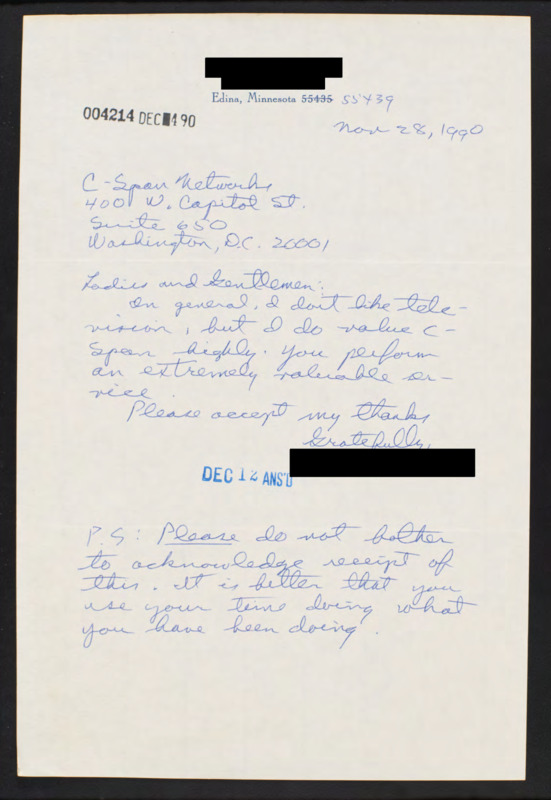 Edina, Minnesota 55435 55439
004214 DEC 4 90
Nov 28, 1990
C-Span Networks
400 W. Capitol St.
Suite 650
Washington, D.C. 20001
Ladies and Gentlemen:
In general, I don't like tele-
vision, but I do value C-
Span highly. You perform
an extremely valuable ser-
vice.
Please accept my thanks
Gratefully,
DEC 12 ANS'D
P.S: Please do not bother
to acknowledge receipt of
this. It is better that you
use your time doing what
you have been doing.